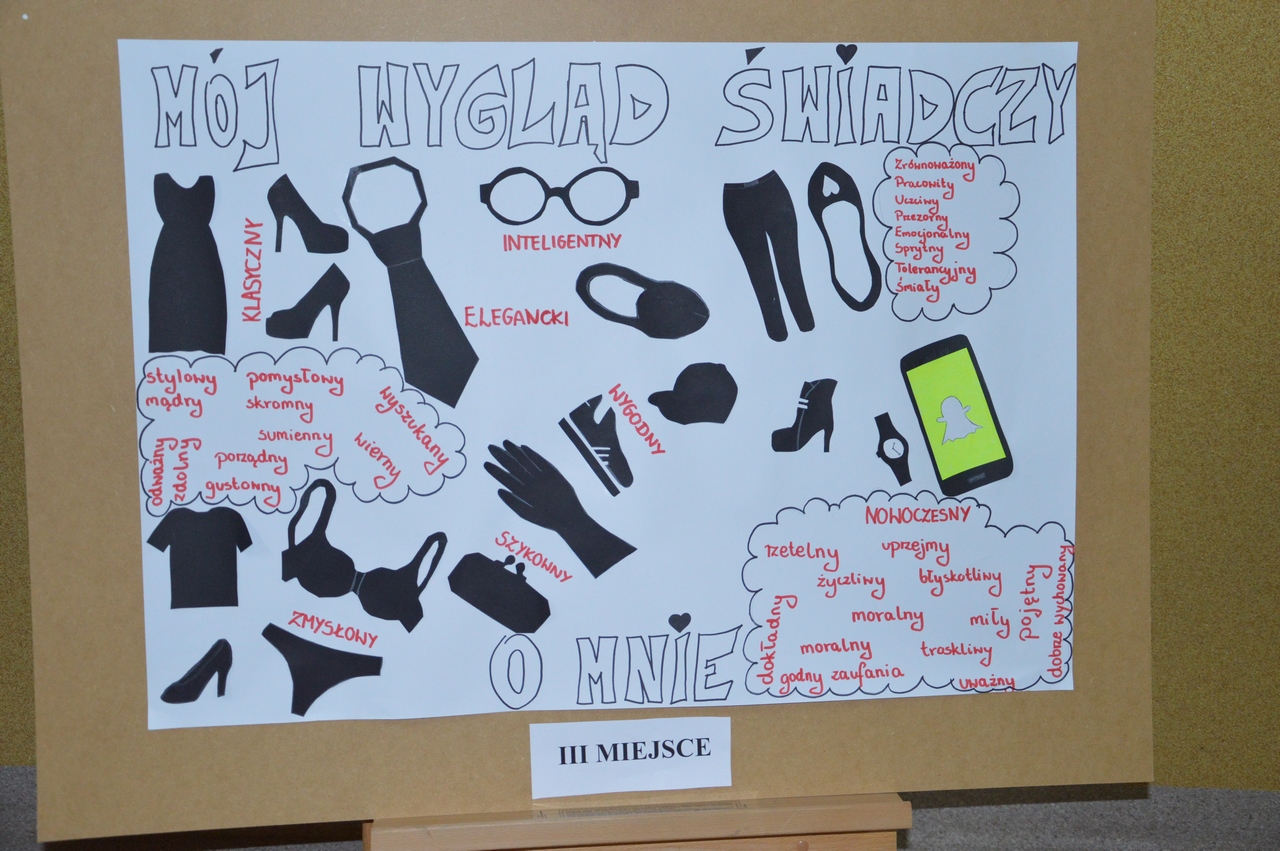 MÓJ WYGLĄD ŚWIADCZY
KLASYCZNY
INTELIGENTNY
ELEGANCKI
Zrównoważony
Pracowity
Uczciwy
Przezorny
Emocjonalny
Sprytny
Tolerancyjny
Śmiały
stylowy pomysłowy
mądry skromny
wyszukany
sumienny
wierny
porządny
odważny
zdolny
gustowny
WYGODNY
SZYKOWNY
ZMYSŁOWY
NOWOCZESNY
rzetelny uprzejmy
życzliwy błyskotliwy
pojętny
dobrze wychowany
moralny miły
dokładny
moralny troskliwy
godny zaufania
uważny
O MNIE
III MIEJSCE